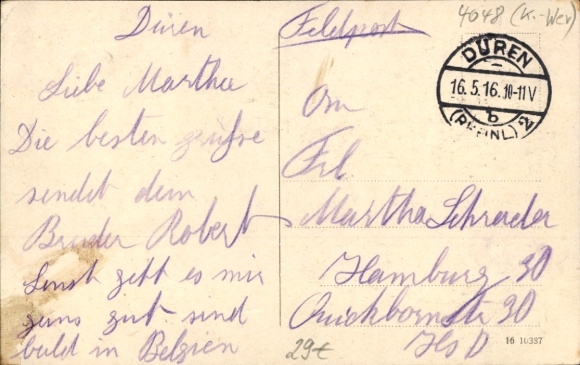 Düren
Liebe Martha
Die besten grüsse
sendet dein
Bruder Robert
Sonst geht es mir
ganz gut sind
bald in Belgien
Feldpost
4048 (K.-Wer)
DÜREN
16.5.16.10-11V
b
(RHEINL) 2
An
Frl
Martha Schrader
Hamburg 30
Quickbornstr 30
Hs
29€
16 10337